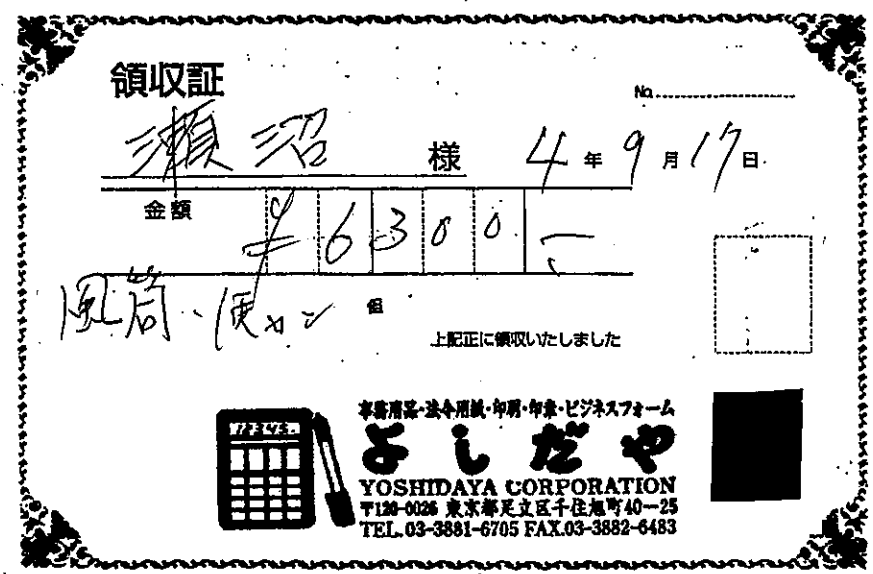 領収証
No.
瀬沼 様 4年9月17日
金額 ¥6300-
風筒・便セン 但
上記正に領収いたしました
事務用品・法令用紙・印刷・印章・ビジネスフォーム
よしだや
YOSHIDAYA CORPORATION
〒120-0026 東京都足立区千住旭町40-25
TEL.03-3881-6705 FAX.03-3882-6483